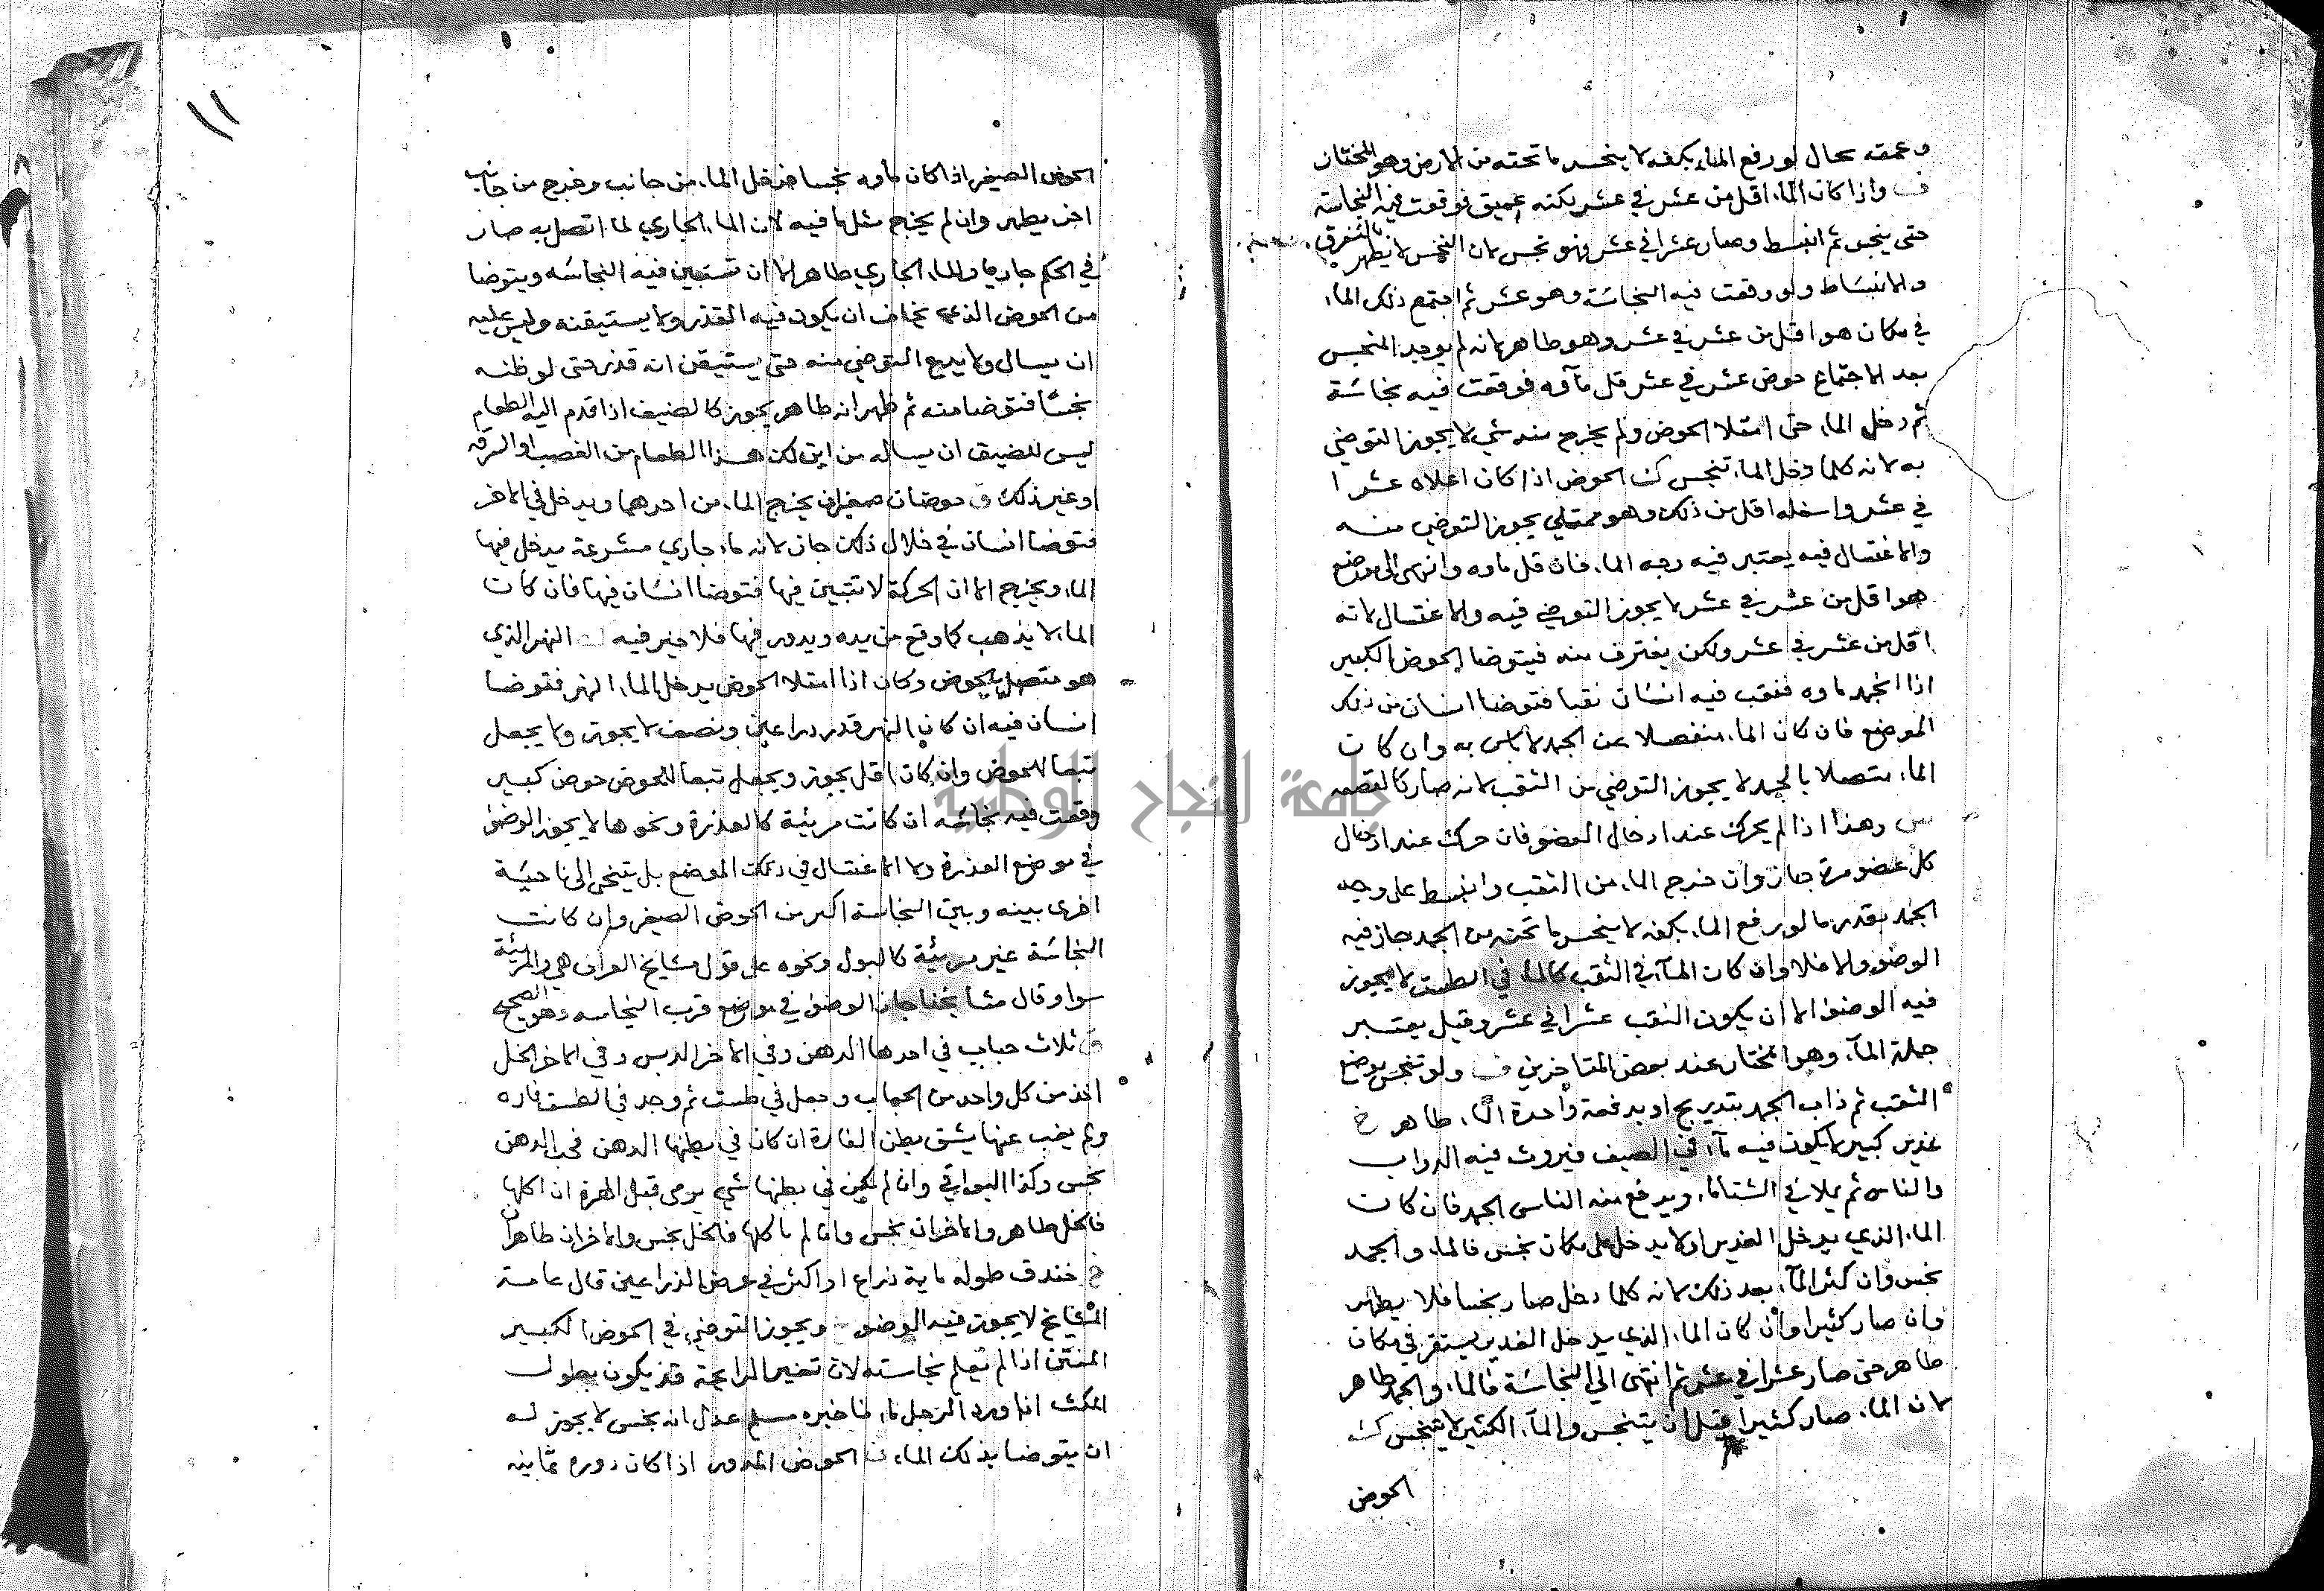 وعمقه بحال لو رفع الماء بكفه لا ينحسر ما تحته من الارض وهو المختار
ف واذا كان الماء اقل من عشر في عشر لكنه عميق فوقعت فيه النجاسة
حتى ينجس ثم انبسط وصار عشرا في عشر فهو نجس لان النجس لا يطهر بالتفرق
والانبساط ولو وقعت فيه النجاسة وهو عشر ثم اجتمع ذلك الماء
في مكان هو اقل من عشر في عشر وهو طاهر لانه لم يوجد المنجس
بعد الاجتماع حوض عشر في عشر قل ماؤه فوقعت فيه نجاسة
ثم دخل الماء حتى امتلا الحوض ولم يخرج منه شي لا يجوز التوضي
به لانه كلما دخل الماء تنجس ك الحوض اذا كان اعلاه عشرا
في عشر واسفله اقل من ذلك وهو ممتلي يجوز التوضي منه
والاغتسال فيه يعتبر فيه وجه الماء فان قل ماوه وانتهى الى موضع
هو اقل من عشر في عشر لا يجوز التوضي فيه والاغتسال لانه
اقل من عشر في عشر ولكن يغترف منه فيتوضا الحوض الكبير
اذا انجمد ماوه فنقب فيه انسان نقبا فتوضا انسان من ذلك
الموضع فان كان الماء منفصلا عن الجمد لا باس به وان كان
الماء متصلا بالجمد لا يجوز التوضي من الثقب لانه صار كالقصعه
س وهذا اذا لم يحرك عند ادخال العضو فان حرك عند ادخال
كل عضو مرة جاز وان خرج الماء من الثقب وانبسط على وجه
الجمد بقدر ما لو رفع الماء بكفه لا ينحسر ما تحته من الجمد جاز فيه
الوضو والا فلا وان كان المآء في الثقب كالماء في الطست لا يجوز
فيه الوضوء الا ان يكون الثقب عشرا في عشر وقيل يعتبر
جملة المآء وهو المختار عند بعض المتاخرين ف ولو تنجس موضع
الثقب ثم ذاب الجمد بتدريج او بدفعة واحدة الماء طاهر خ
غدير كبير لا يكون فيه مآء في الصيف فيروث فيه الدواب
والناس ثم يملا في الشتا ماء ويرفع منه الناس الجمد فان كان
الماء الذي يدخل الغدير اولا يدخل على مكان نجس فالماء والجمد
نجس وان كثر المآء بعد ذلك لانه كلما دخل صار نجسا فلا يطهر
وان صار كثيرا وان كان الماء الذي يدخل الغدير يستقر في مكان
طاهر حتى صار عشرا في عشر ثم انتهى الى النجاسة فالماء والجمد طاهر
لان الماء صار كثيرا قبل ان يتنجس والمآء الكثير لا يتنجس ك
الحوض
١١
الحوض الصغير اذا كان ماوه نجسا فدخل الماء من جانب وخرج من جانب
اخر يطهر وان لم يخرج مثل ما فيه لان الماء الجاري لما اتصل به صار
في الحكم جاريا والماء الجاري طاهر الا ان تستبين فيه النجاسة ويتوضا
من الحوض الذي يخاف ان يكون فيه القذر ولا يستيقنه وليس عليه
ان يسال ولا يدع التوضي منه حتى يستيقن انه قذر حتى لو ظنه
نجسا فتوضا منه ثم ظهر انه طاهر يجوز كالضيف اذا قدم اليه الطعام
ليس للضيف ان يساله من اين لك هذا الطعام من الغصب او السرقه
او غير ذلك ق حوضان صغيران يخرج الماء من احدهما ويدخل في الاخر
فتوضا انسان في خلال ذلك جاز لانه ماء جاري مشرعة يدخل فيها
الماء ويخرج الا ان الحركة لا تتبين فيها فتوضا انسان فيها فان كان
الماء لا يذهب كما وقع من يده ويدور فيها فلا خير فيه النهر الذي
هو متصل بالحوض وكان اذا امتلا الحوض يدخل الماء النهر فتوضا
انسان فيه ان كان النهر قدر دراعين ونصف لا يجوز ولا يجعل
تبعا للحوض وان كان اقل يجوز ويجعل تبعا للحوض حوض كبير
وقعت فيه نجاسه ان كانت مرئية كالعذرة ونحوها لا يجوز الوضو
في موضع العذرة ولا الاغتسال في ذلك الموضع بل يتنحى الى ناحية
اخرى بينه وبين النجاسة اكبر من الحوض الصغير وان كانت
النجاسة غير مرئية كالبول ونحوه على قول مشايخ العراق هي والمرئية
سوا وقال مشايخنا جاز الوضو في موضع قرب النجاسه وهو الصحيح
ق ثلاث حباب في احدها الدهن وفي الاخر الدبس وفي الاخر الخل
اخذ من كل واحد من الحباب وجعل في طست ثم وجد في الطست فاره
ولم يغب عنها يشق بطن الفارة ان كان في بطنها الدهن فحب الدهن
نجس وكذا البواقي وان لم يكن في بطنها شي يرمى قبل الهرة ان اكلها
فالخل طاهر والاخران نجس وان لم ياكلها فالخل نجس والاخران طاهران
خ خندق طوله ماية ذراع او اكثر في عرض الذراعين قال عامة
المشايخ لا يجوز فيه الوضو ويجوز التوضي في الحوض الكبير
المنتن اذا لم تعلم نجاسته لان تغير الرايحة قد يكون بطول
المكث اذا ورد الرجل ماء فاخبره مسلم عدل انه نجس لا يجوز له
ان يتوضا بذلك الماء ف الحوض المدور اذا كان دوره ثمانيه
جامعة النجاح الوطنية